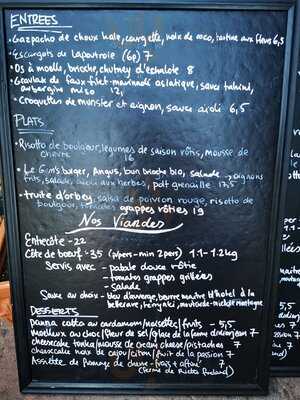 ENTREES
• Gazpacho de choux kale, courgette, noix de coco, tartine aux fleurs 6,5
• Escargots de Lapoutroie (6p) 7
• Os à moelle, brioche, chutney d'échalote 8
• Gravlax de faux-filet mariné asiatique, sauce tahini,
aubergine miso 12,
• Croquettes de munster et oignon, sauce aïoli 6,5
PLATS
• Risotto de boulgour, légumes de saison rôtis, mousse de
chèvre 16
• Le Gim's burger, Angus, bun brioche bio, salade - oignons
frits, salade, aïoli aux herbes, pdt grenaille 17,5
• truite d'orbey, salsa de poivron rouge, risotto de
boulgour, tomates grappes rôties 19
Nos Viandes
Entrecôte - 22
Côte de bœuf - 35 (p/pers - min 2 pers) 1.1 - 1.2kg
Servis avec - patate douce rôtie
- tomates grappes grillées
- salade
Sauce au choix - bleu d'auvergne, beurre maître d'Hôtel à la
betterave, teriyaki, moutarde-miel de montagne
DESSERTS
panna cotta au cardamom/noisettes/fruits - 5,5
moelleux au choc/fleur de sel/glace de la ferme 7
cheesecake tonka/mousse de cream cheese/pistaches 7
cheesecake noix de cajou/citron/fruit de la passion 7
Assiette de fromage de chèvre - frais + affiné 7